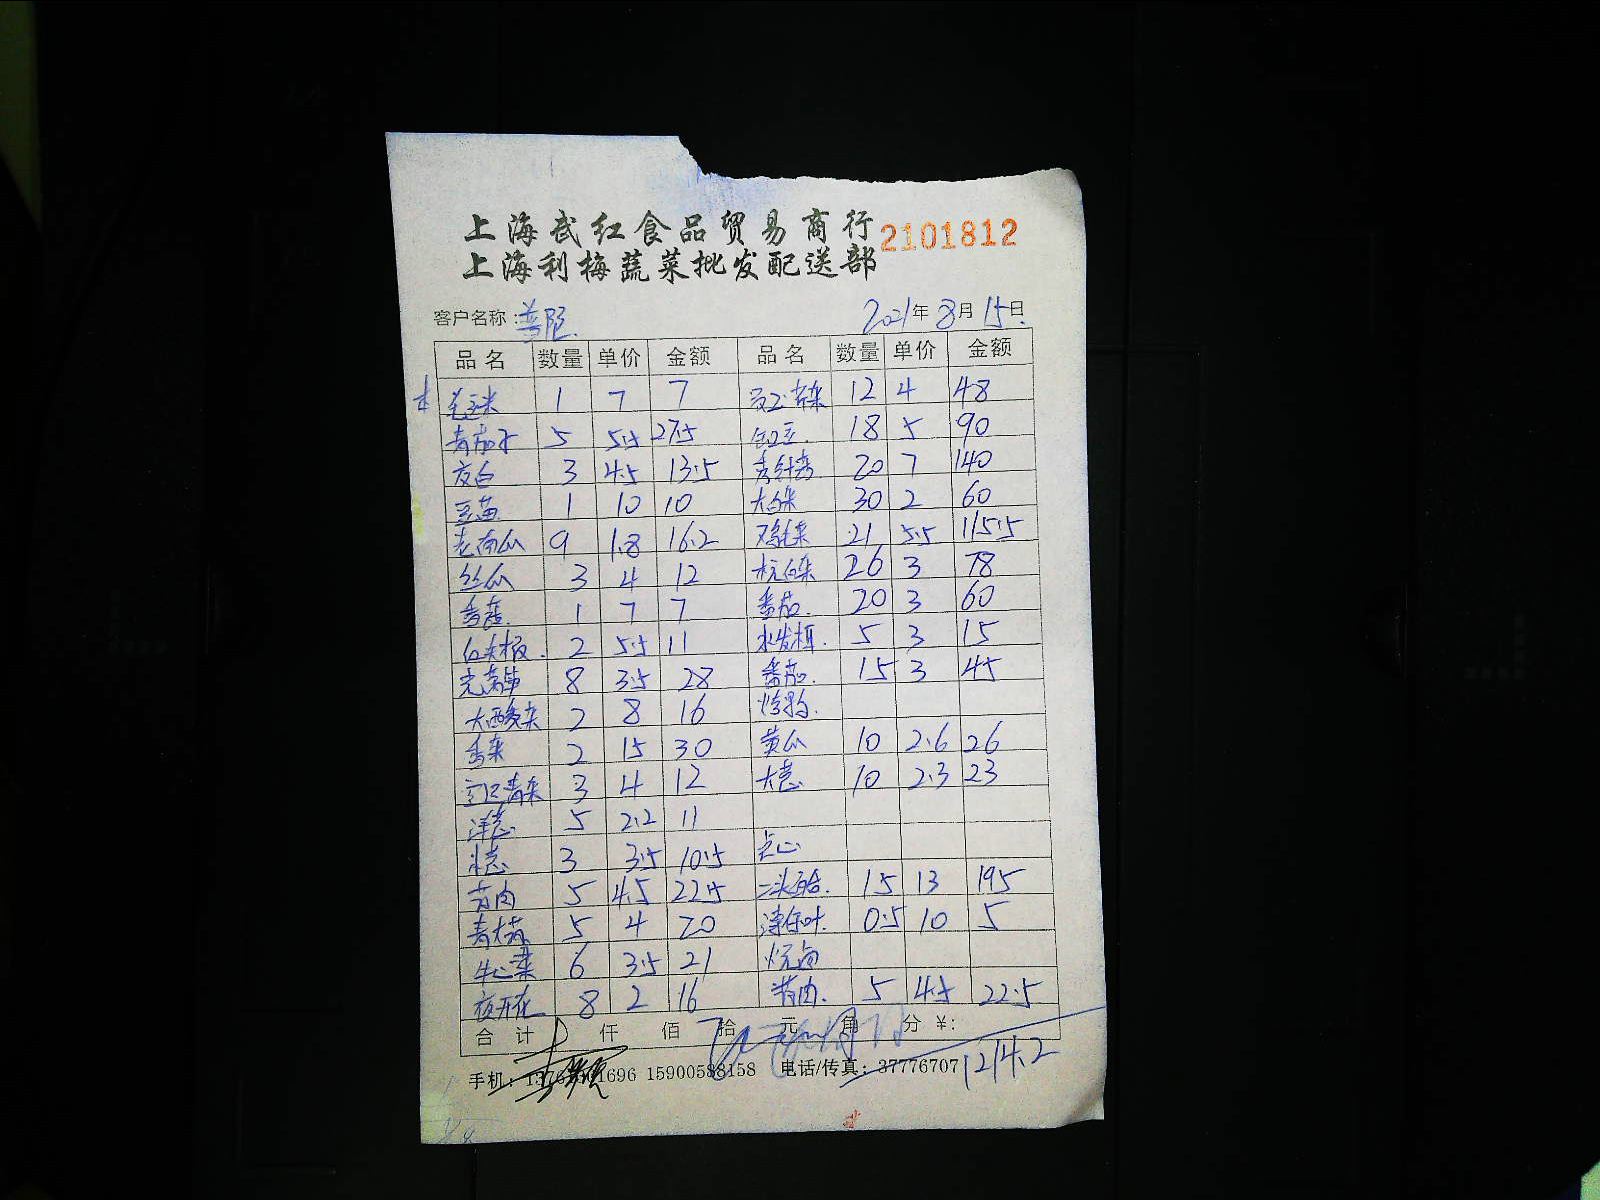 上海武红食品贸易商行
2101812
上海利梅蔬菜批发配送部
客户名称：普陀 2021年8月15日
品名 数量 单价 金额 品名 数量 单价 金额
玉米 1 7 7 12 4 48
青茄子 5 5.5 27.5 豇豆 18 5 90
3 4.5 13.5 20 7 140
豆苗 1 10 10 大白菜 30 2 60
老南瓜 9 1.8 16.2 鸡毛菜 21 5.5 115.5
丝瓜 3 4 12 杭白菜 26 3 78
香葱 1 7 7 番茄 20 3 60
红尖椒 2 5.5 11 水发 5 3 15
光莴笋 8 3.5 28 番茄 15 3 45
大酸菜 2 8 16
香菜 2 15 30 黄瓜 10 2.6 26
青菜 3 4 12 大葱 10 2.3 23
洋葱 5 2.2 11
3 3.5 10.5 点心
肉 5 4.5 22.5 15 13 195
青大 5 4 20 0.5 10 5
牛心菜 6 3.5 21 烧卤
夜开花 8 2 16 肉 5 4.5 22.5
合计 仟 佰 拾 元 角 分 ¥:
1214.2
手机： 1696 15900588158 电话/传真：37776707